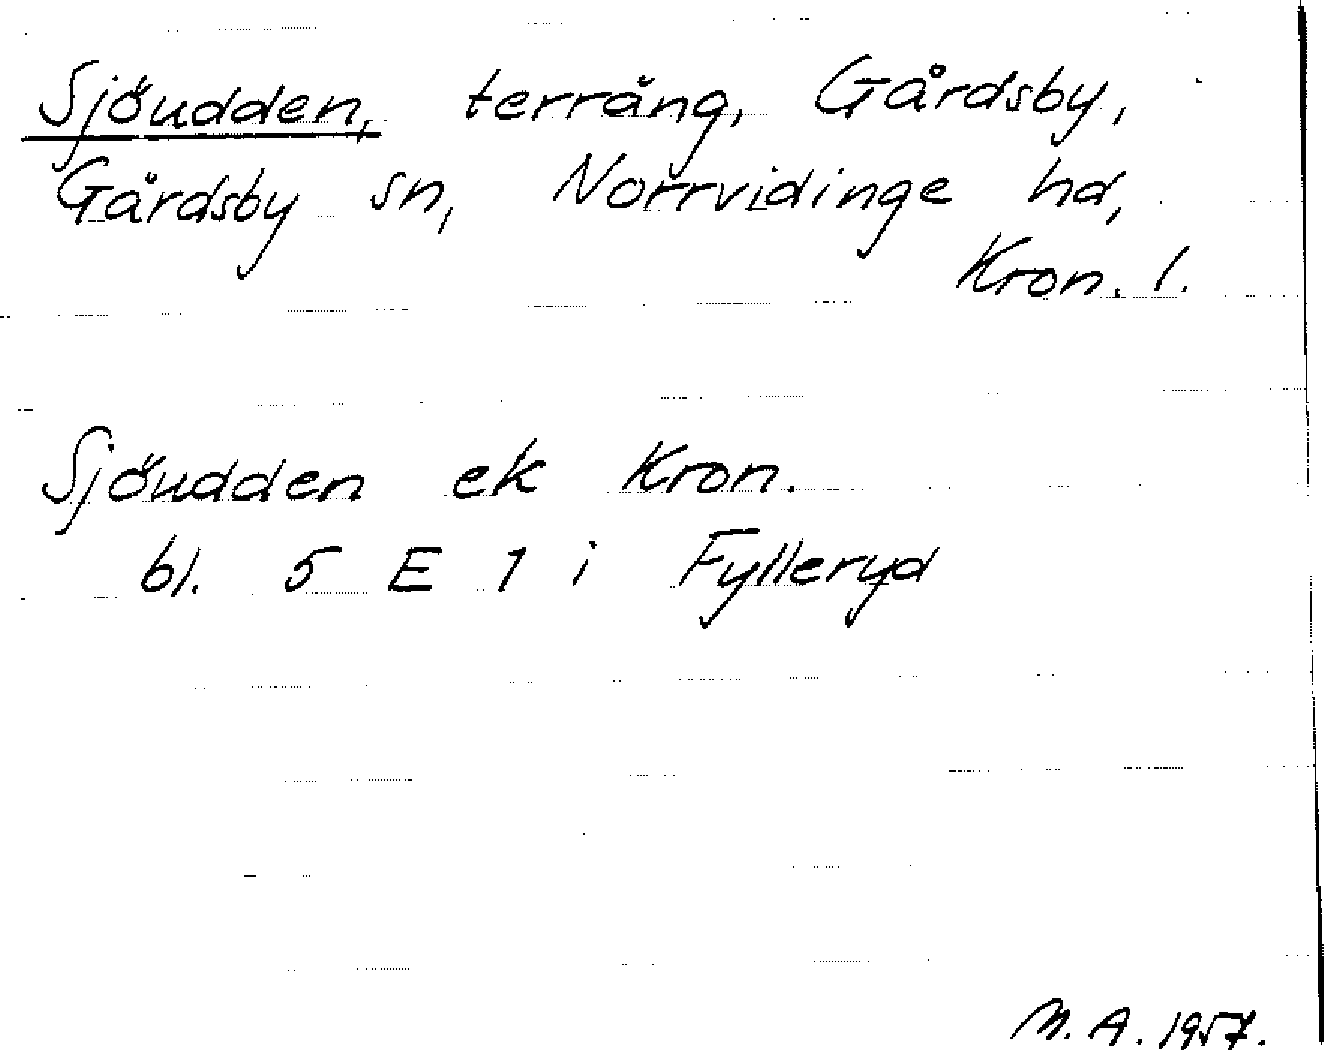 Sjöudden, terräng, Gårdsby,
Gårdsby sn, Norrvidinge hd,
Kron. l.
Sjöudden ek Kron.
bl. 5 E 1 i Fylleryd
M. A. 1957.